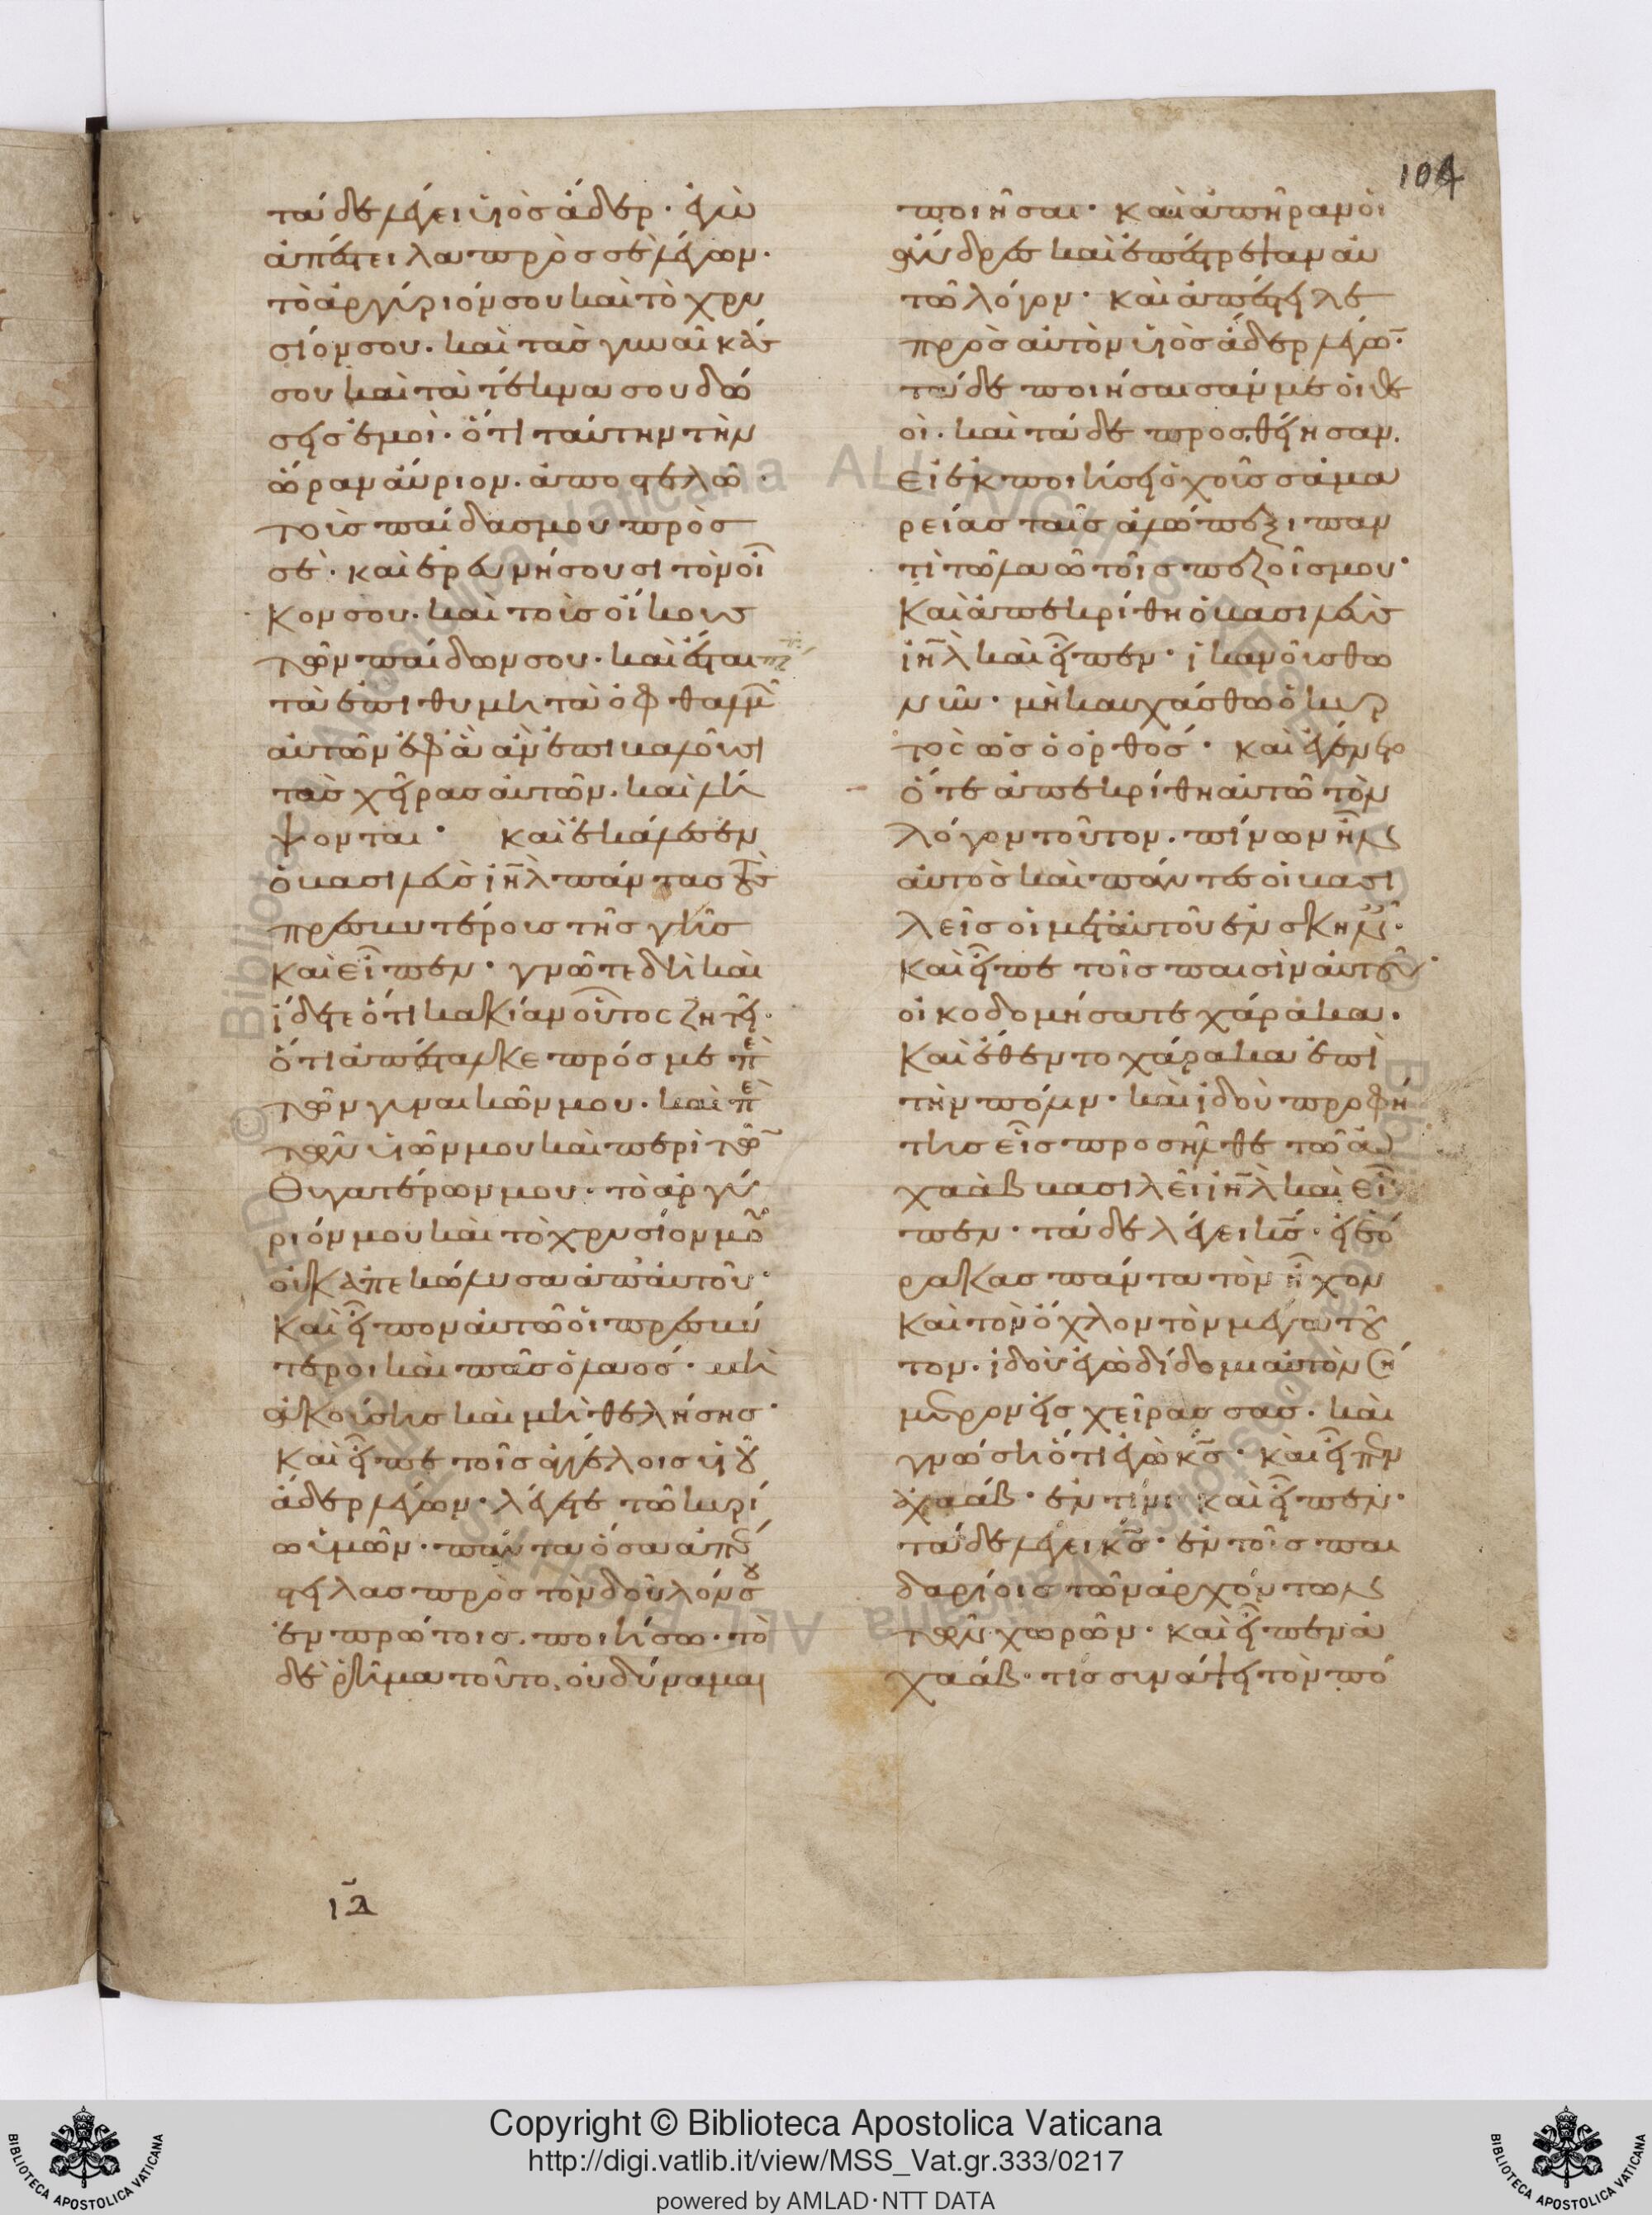 104
τάδε λέγει υἱὸς ἄδερ· ἐγὼ
ἀπέστειλα πρὸς σὲ λέγων.
τὸ ἀργύριόν σου καὶ τὸ χρυ
σίον σου. καὶ τὰς γυναῖκάς
σου καὶ τὰ τέκνα σου δώ
σεις ἐμοὶ· ὅτι ταύτην τὴν
ὥραν ἀύριον. ἀποστελῶ
τοὺς παῖδας μου πρὸς
σὲ· καὶ ἐρευνήσουσι τὸν οἶ
κον σου. καὶ τοὺς οἴκους
τῶν παίδων σου. καὶ ἔσται
τὰ ἐπιθυμήτὰ ὀφθαλμῶ
αὐτῶν ἐφ ἃ ἂν ἐπιβαλοῦσι
τὰς χεῖρας αὐτῶν. καὶ λή
ψονται· καὶ ἐκάλεσεν
ὁ βασιλεὺς ιηλ πάντας τοὺς
πρεσβυτέρους τῆς γῆς
καὶ εἶπεν· γνῶτε δὴ καὶ
ἴδετε ὅτι κακίαν οὗτος ζητεῖ.
ὅτι ἀπέσταλκε πρός με πε
τῶν γυναικῶν μου. καὶ πε
τῶν υἱῶν μου καὶ περὶ τῶ
θυγατέρων μου· τὸ ἀργύ
ριόν μου καὶ τὸ χρυσίον μου
οὐκ ἀπεκώλυσα ἀπ αὐτοῦ·
καὶ εἶπον αὐτῶ ὁι πρεσβύ
τεροι καὶ πᾶς ὁ λαός· μὴ
ἀκούσης καὶ μὴ θελήσης·
καὶ εἶπε τοῖς ἀγγέλοις υἱοῦ
ἄδερ λέγων· λέγετε τῶ κυρί
ω ὑμῶν· πάντα ὅσα ἀπέ
στειλας πρὸς τὸν δοῦλόν σου
ἐν πρώτοις. ποιήσω· τὸ
δὲ ῥῆμα τοῦτο, οὐ δύναμαι
ια
ποιῆσαι· καὶ ἀπῆραν ὁι
ἄνδρες καὶ ἐπέστρεψαν αυ
τῶ λόγον· καὶ ἀπέστειλε
πρὸς αὐτὸν υἱὸς ἄδερ λέγω·
τάδε ποιήσαισάν με ὁι θε
οὶ. καὶ τάδε προσθείησαν.
εἰ ἐκποιήσει ὁ χοῦς σαμα
ρείας ταῖς ἀλώπεξι παν
τὶ τῶ λαῶ τοῖς πεζοῖς μου·
καὶ ἀπεκρίθη ὁ βασιλεὺς
ιηλ καὶ εἶπεν· ἱκανοῦσθω
νῦν· μὴ καυχάσθω ὁ κυρ
τὸς ὡς ὁ ὀρθός· καὶ ἐγένετο
ὅτε ἀπεκρίθη αὐτῶ τὸν
λόγον τοῦτον. πίνων ἦν
αὐτὸς καὶ πάντες οἱ βασι
λεῖς οἱ μετ αὐτοῦ ἐν σκηναῖς.
καὶ εἶπε τοῖς παισὶν αὐτοῦ·
οἰκοδομήσατε χάρακα.
καὶ ἔθεντο χάρακα ἐπὶ
τὴν πόλιν· καὶ ἰδοὺ προφή
της εἷς προσῆλθε τῶ ἀ
χαὰβ βασιλεῖ ιηλ καὶ εἶ
πεν· τάδε λέγει κς· εἰ ἑό
ρακας πάντα τὸν ἦχον
καὶ τὸν ὄχλον τὸν μέγαν τοῦ
τον. ἰδοὺ ἐγὼ δίδομι αὐτὸν σή
μερον εἰς χεῖρας σὰς· καὶ
γνώση ὅτι ἐγὼ κς· καὶ εἶπεν
ἀχαάβ· ἐν τίνι καὶ εἶπεν·
τάδε λέγει κς· ἐν τοῖς παι
δαρίοις τῶν ἀρχόντων
τῶν χωρῶν· καὶ εἶπεν ἀ
χαάβ· τίς συνάψει τὸν πό
Copyright © Biblioteca Apostolica Vaticana
http://digi.vatlib.it/view/MSS_Vat.gr.333/0217
powered by AMLAD·NTT DATA
BIBLIOTECA APOSTOLICA VATICANA
BIBLIOTECA APOSTOLICA VATICANA